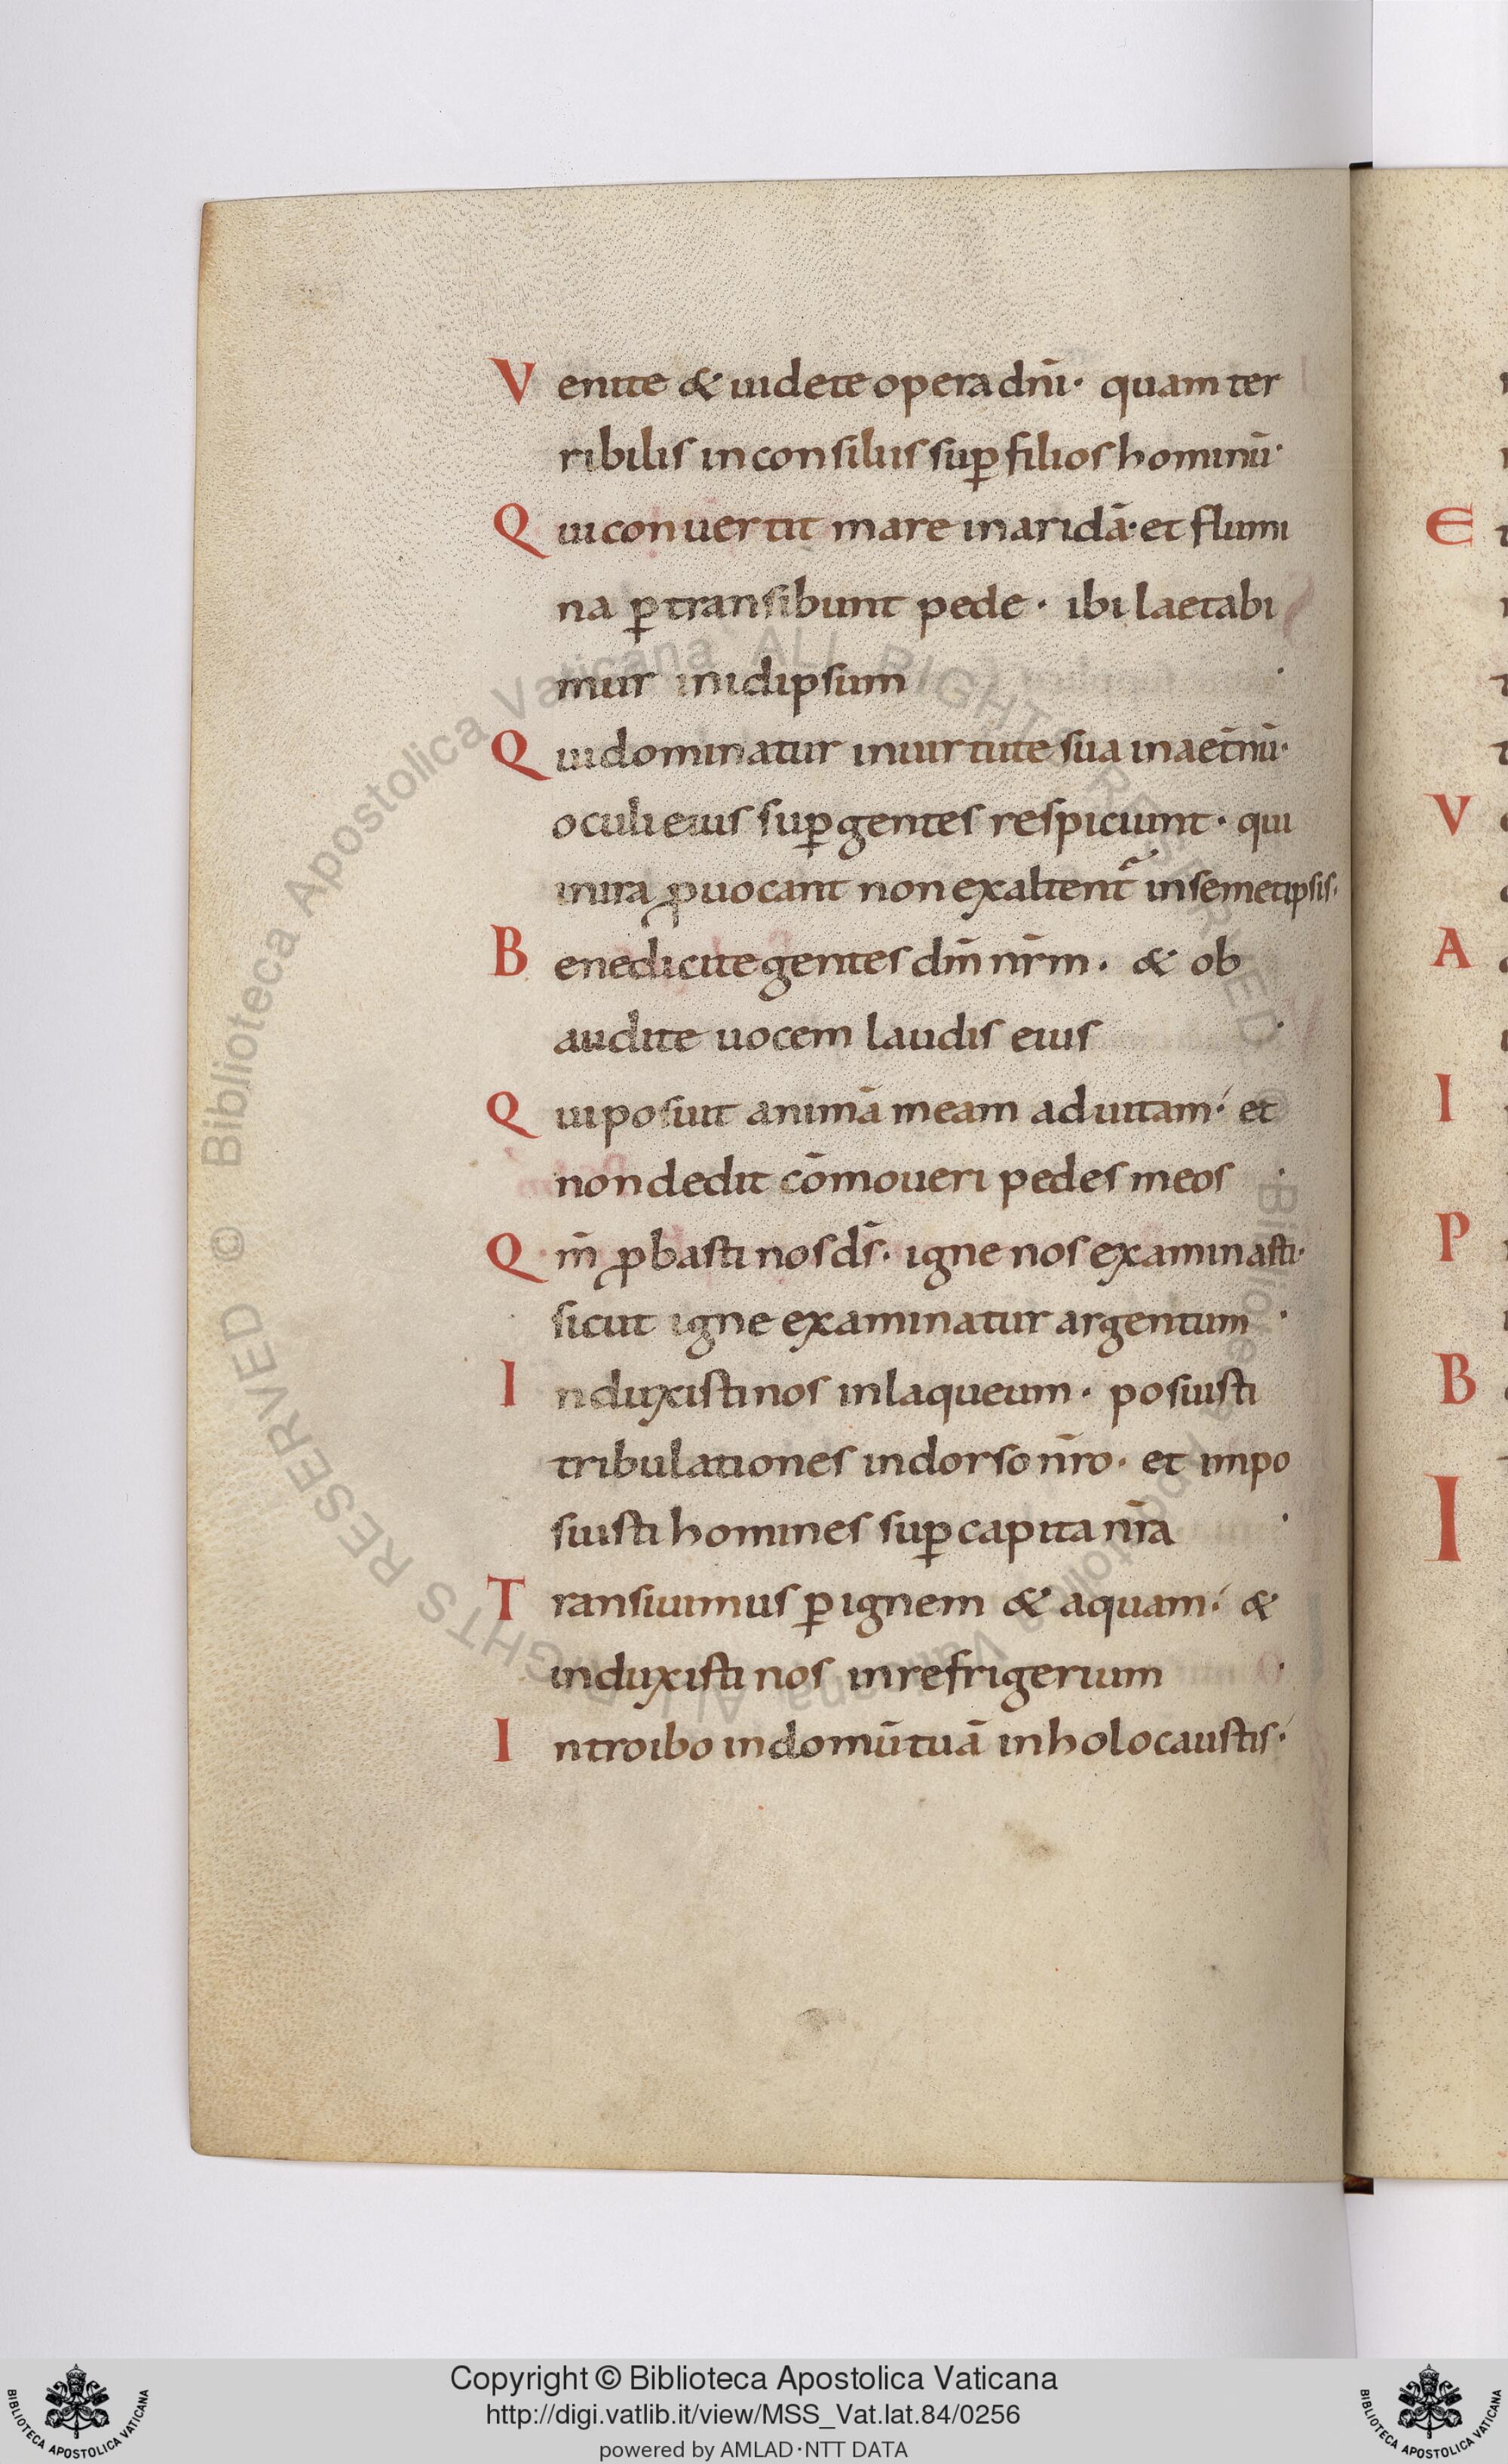 Venite & uidete opera dn̄i · quam ter
ribilis in consiliis sup̄ filios hominū·
Qui conuertit mare in aridā· et flumi
na p̄transibunt pede · ibi laetabi
mur in idipsum ·
Qui dominatur in uirtute sua in aet̄nū·
oculi eius sup̄ gentes respiciunt · qui
in ira ꝓuocant non exaltent᷑ in semetipsis·
Benedicite gentes dn̄m nr̄m · & ob
audite uocem laudis eius ·
Qui posuit animā meam ad uitam· et
non dedit cōmoueri pedes meos ·
Qm̄ ꝓbasti nos ds̄ · igne nos examinasti·
sicut igne examinatur argentum ·
Induxisti nos in laqueum · posuisti
tribulationes in dorso nr̄o · et impo
suisti homines sup̄ capita nr̄a ·
Transiuimus p̄ ignem & aquam· &
induxisti nos in refrigerium ·
Introibo in domū tuā in holocaustis·
E
V
A
I
P
B
I
© Biblioteca Apostolica Vaticana ALL RIGHTS RESERVED
Copyright © Biblioteca Apostolica Vaticana
http://digi.vatlib.it/view/MSS_Vat.lat.84/0256
powered by AMLAD·NTT DATA
BIBLIOTECA APOSTOLICA VATICANA
BIBLIOTECA APOSTOLICA VATICANA